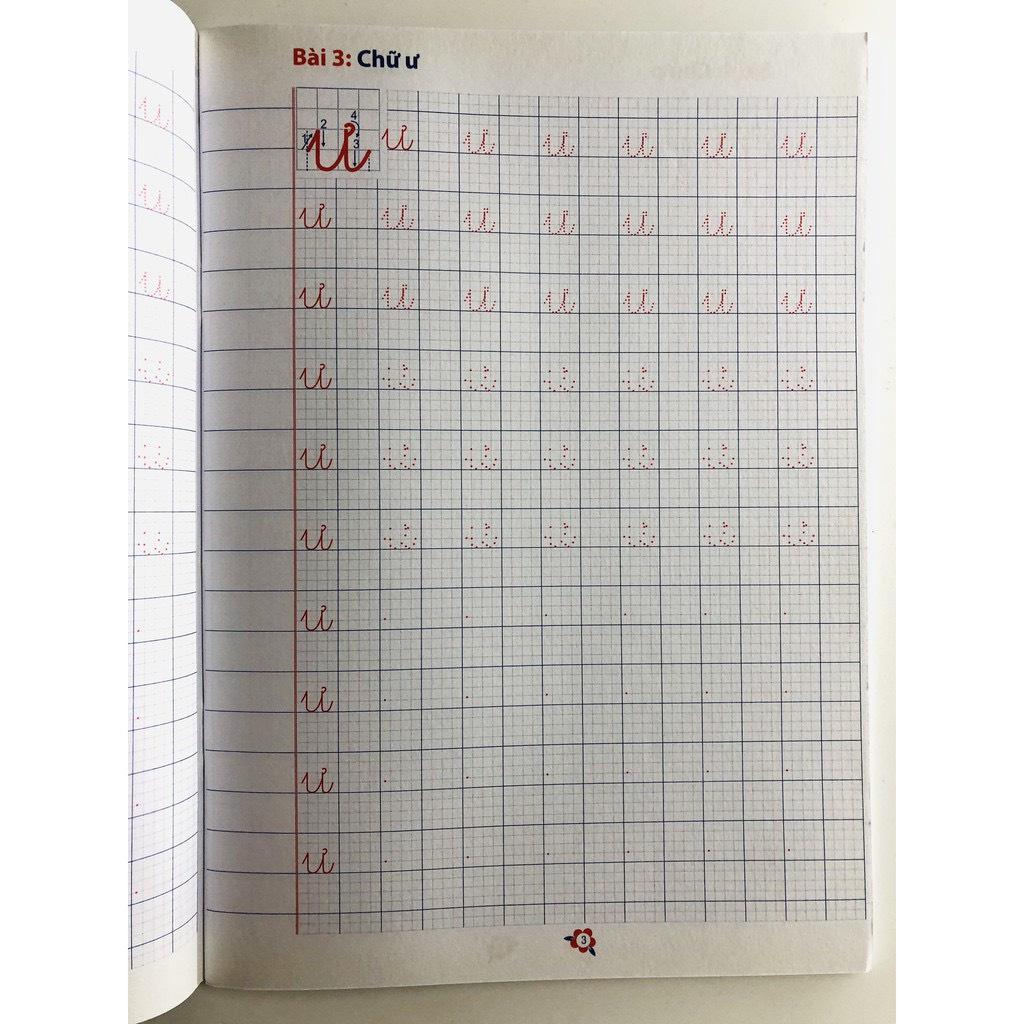 Bài 3: Chữ ư
1 2 4 3
ư ư ư ư ư ư ư
ư ư ư ư ư ư ư
ư ư ư ư ư ư ư
ư ư ư ư ư ư ư
ư ư ư ư ư ư ư
ư ư ư ư ư ư ư
ư
ư
ư
ư
3